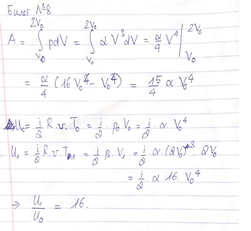 Билет №8
A = ∫_{V₀}^{2V₀} p dV = ∫_{V₀}^{2V₀} α V³ dV = α/4 V⁴ |_{V₀}^{2V₀}
= α/4 (16 V₀⁴ - V₀⁴) = 15/4 α V₀⁴
U₀ = i/2 R ν T₀ = i/2 p₀ V₀ = i/2 α V₀⁴
U₁ = i/2 R ν T₁ = i/2 p₁ V₁ = i/2 α (2V₀)³ · 2V₀
= i/2 α 16 V₀⁴
⇒ U₁/U₀ = 16.